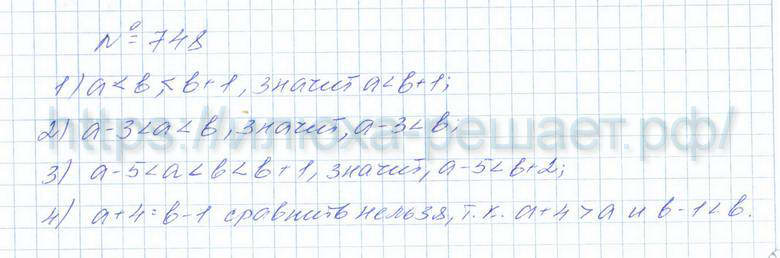 № 748
1) a < в < в+1, значит a < в+1;
2) a-3 < a < в, значит, a-3 < в;
https://илюха-решает.рф/
3) a-5 < a < в < в+1, значит, a-5 < в+2;
4) a+4 : в-1 сравнить нельзя, т.к. a+4 > a и в-1 < в.